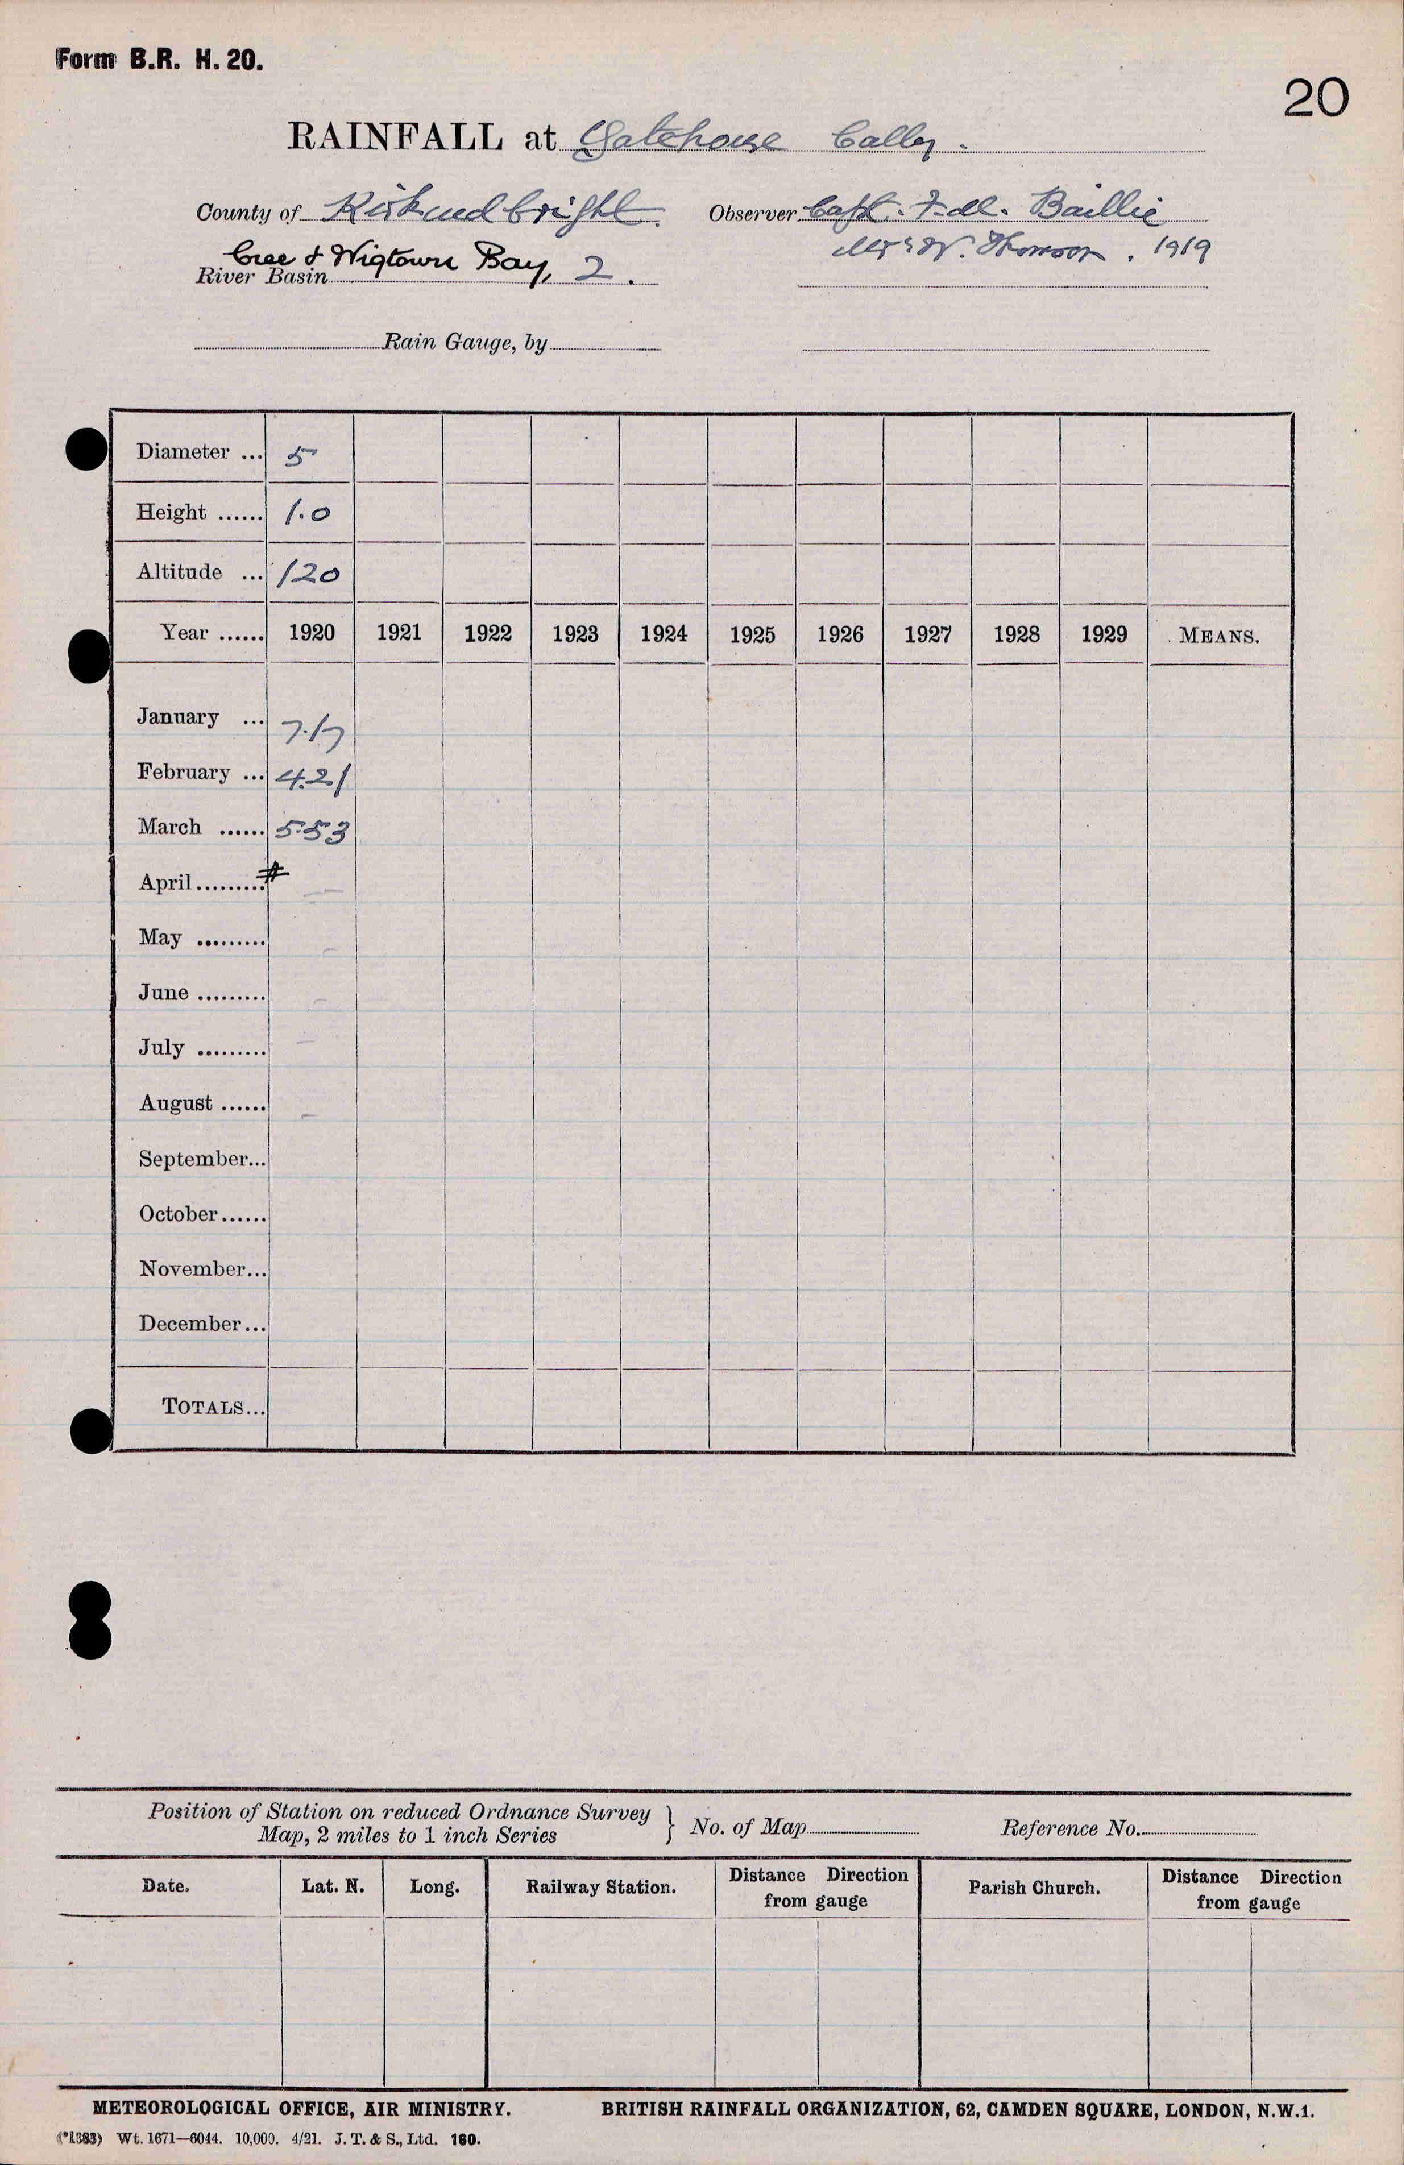 Form B.R. H. 20.
20
RAINFALL at Gatehouse Cally.
County of Kirkcudbright. Observer Capt. F. Baillie
Cree & Wigtown Bay, 2. W. Thomson. 1919
River Basin
Rain Gauge, by
Diameter ... 5
Height ...... 1.0
Altitude ... 120
Year ...... 1920 1921 1922 1923 1924 1925 1926 1927 1928 1929 MEANS.
January ... 7.17
February ... 4.21
March ...... 5.53
April......... #
May .........
June .........
July .........
August ......
September...
October......
November...
December...
TOTALS...
Position of Station on reduced Ordnance Survey
Map, 2 miles to 1 inch Series } No. of Map Reference No.
Date. Lat. N. Long. Railway Station. Distance Direction from gauge Parish Church. Distance Direction from gauge
METEOROLOGICAL OFFICE, AIR MINISTRY. BRITISH RAINFALL ORGANIZATION, 62, CAMDEN SQUARE, LONDON, N.W.1.
(*1383) Wt. 1671—6044. 10,000. 4/21. J. T. & S., Ltd. 160.